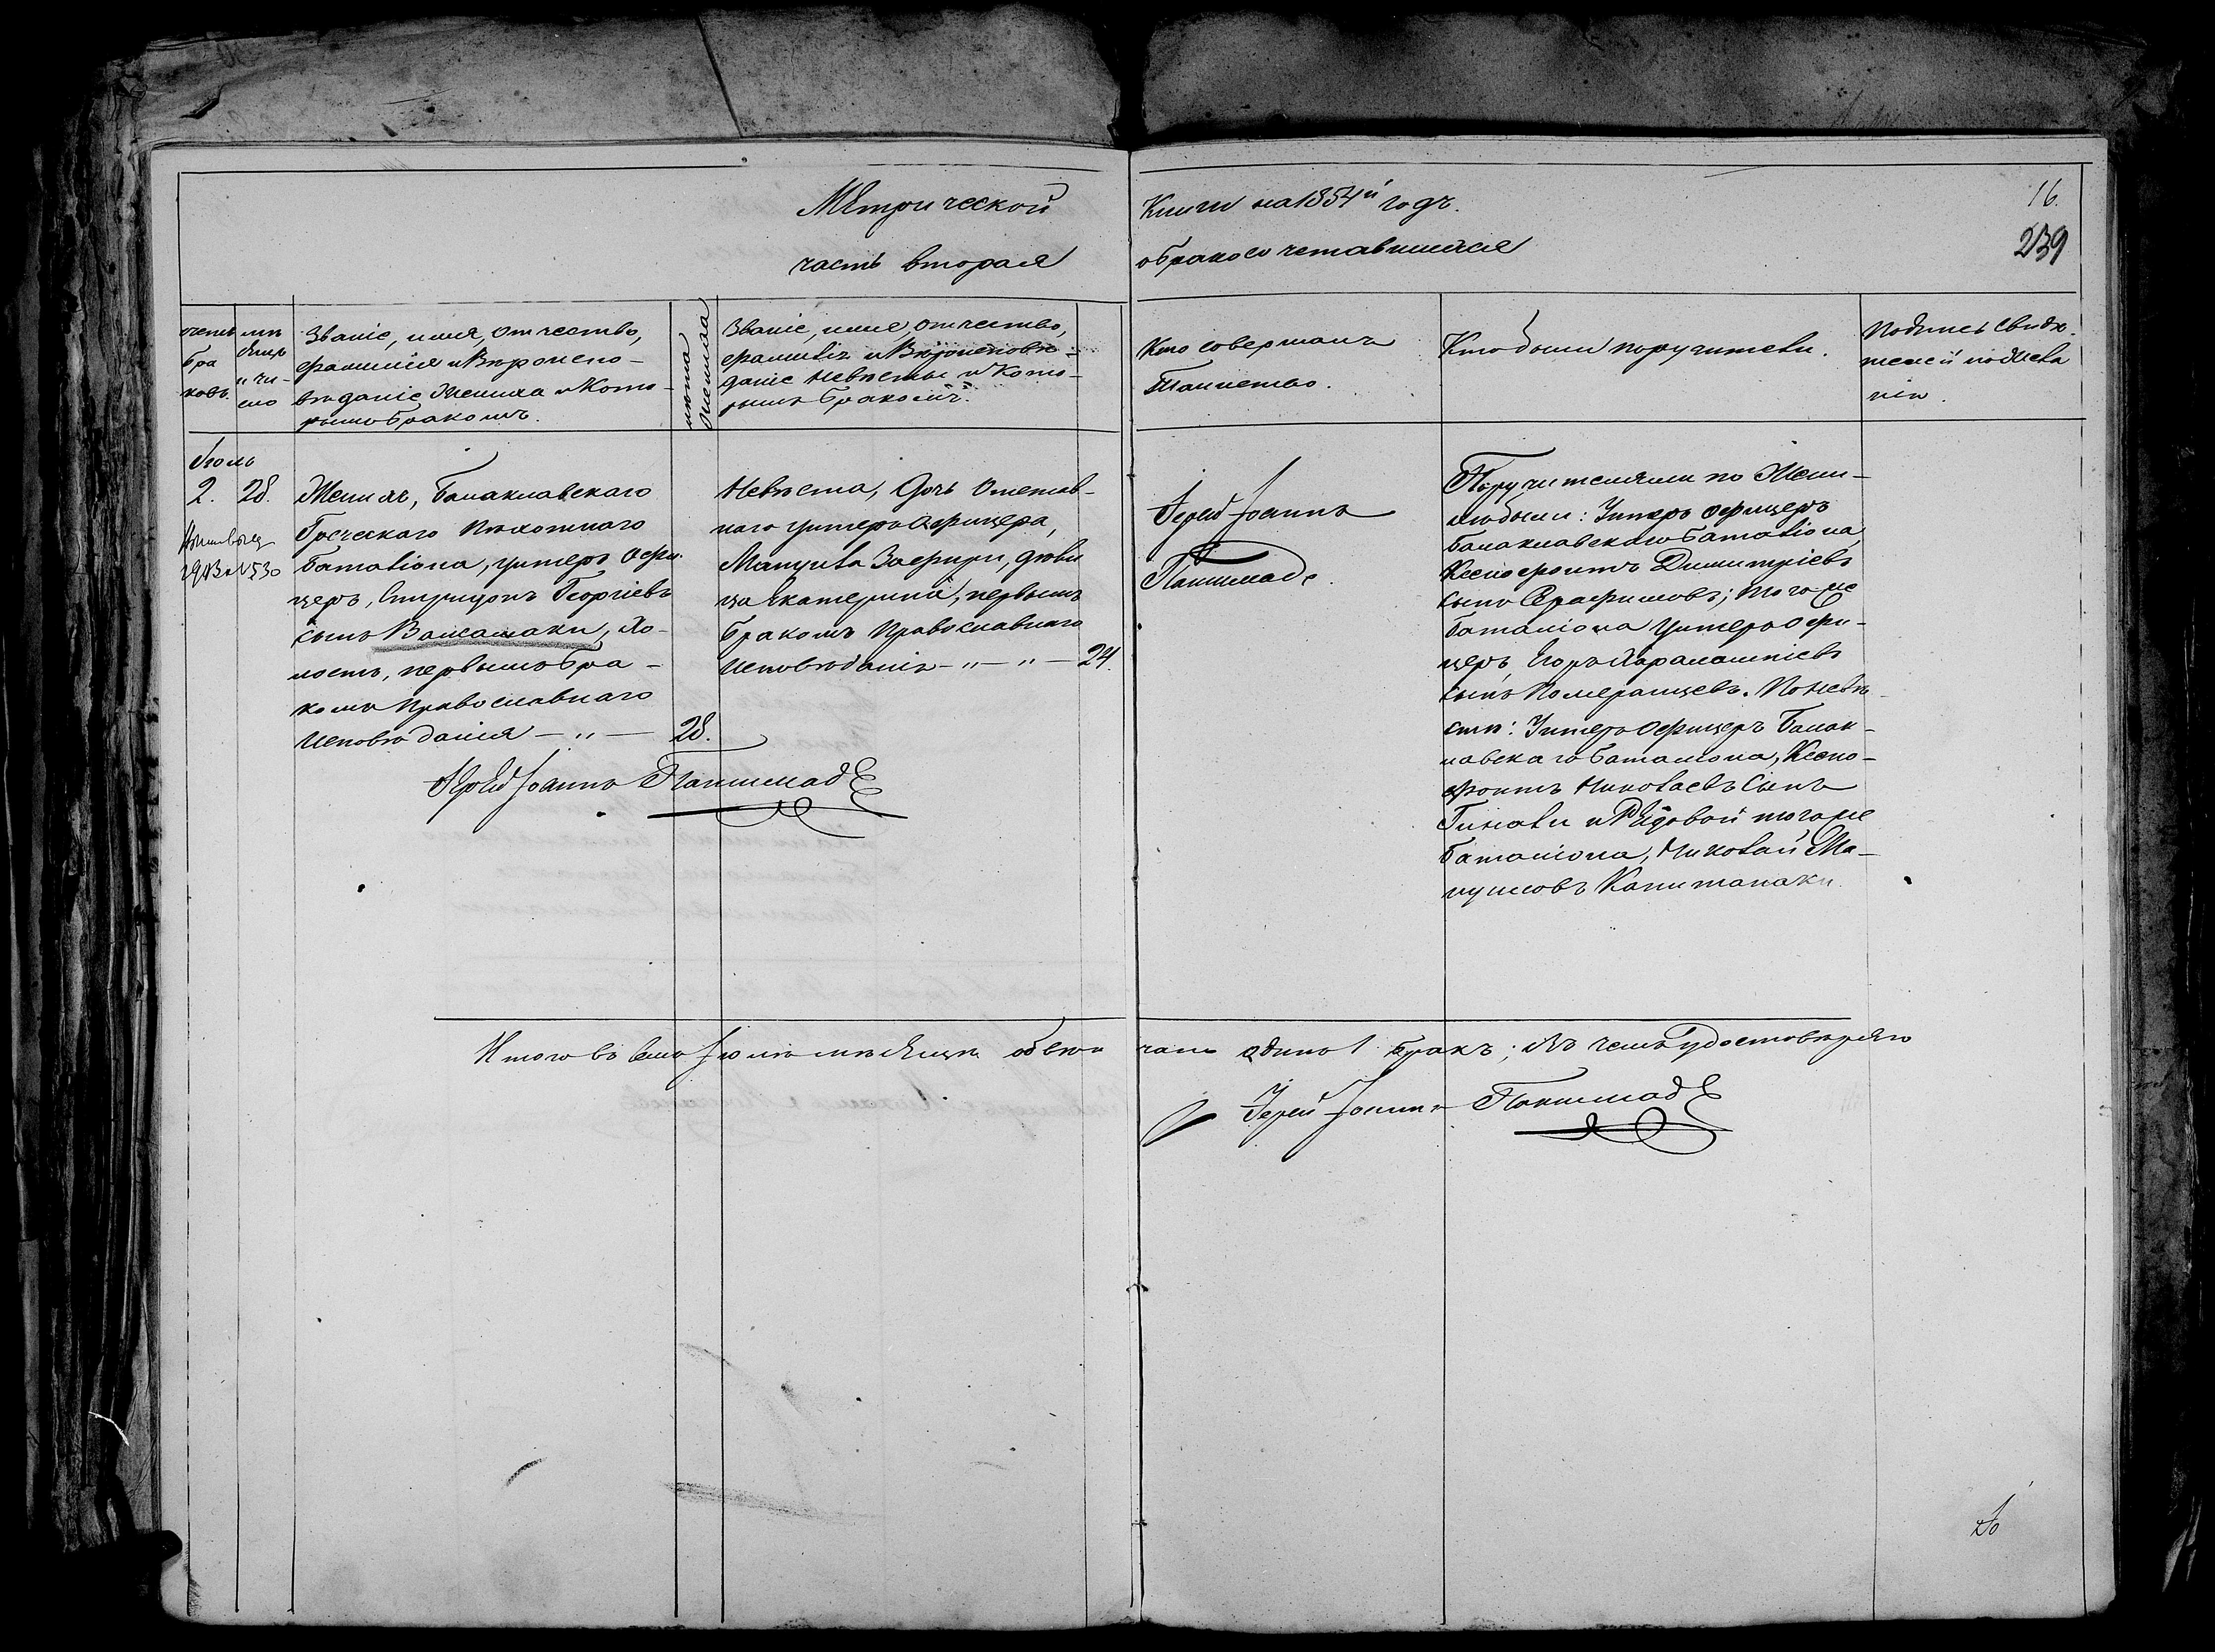 Метрической
часть вторая
Книги на 1854й годъ.
о бракосочетавшихся
16.
239
счетъ бра ковъ.
мѣ сяцъ и чи- сло
Званіе, имя, отчество,
фамилія и Вѣроиспо-
вѣданіе Жениха и Кото-
рымъ бракомъ.
лѣта Жениха
Званіе, имя, отчество,
фамилія и Вѣроисповѣ-
даніе Невѣсты и Кото-
рымъ бракомъ.
Кто совершалъ
Таинство.
Кто были поручители.
Подпись свидѣ-
телей по Жела
нію.
Іюль
2. 28.
Женихъ, Балаклавскаго
Греческаго Пѣхотнаго
Баталіона, унтеръ Офи-
церъ, Спиридонъ Георгіевъ
сынъ Важамаки, Хо-
лостъ, первымъ бра-
комъ Православнаго
Исповѣданія — " — 28.
Іерей Іоаннъ Папимадъ
Невѣста, Дочь Отстав-
наго унтеръ Офицера,
Мануила Зафири, дѣви
ца Екатерина, первымъ
бракомъ Православнаго
Исповѣданія — " — " — 24.
Іерей Іоаннъ
Папимадъ.
Поручителями по Жени-
хѣ были: Унтеръ офицеръ
Балаклавскаго Баталіона
Ксенофонтъ Димитріевъ
сынъ Серафимовъ; того же
Баталіона Унтеръ Офи-
церъ, Егоръ Харалампіевъ
сынъ Померанцевъ. По невѣ-
стѣ: Унтеръ Офицеръ Балак-
лавскаго Баталіона, Ксено-
фонтъ Николаевъ Сынъ
Гинали и Рядовой того же
Баталіона, Николай Ма-
нуиловъ Капитанаки.
Итого въ семъ Іюлѣ мѣсяцѣ обвѣн чанъ одинъ 1 бракъ; Въ чемъ удостовѣряю
Іерей Іоаннъ Папимадъ